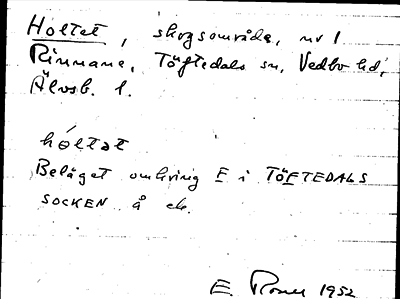 Holtet, skogsområde, nr 1
Rinnane, Töftedals sn, Vedbo hd,
Älvsb. l.
hóltat
Beläget omkring E i TÖFTEDALS
SOCKEN å ek.
E. 1952